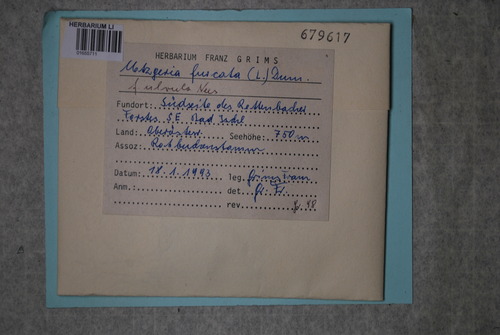 HERBARIUM LI
679617
HERBARIUM FRANZ GRIMS
Metzgeria furcata (L.) Dum.
f. ulvula Nees
Fundort: Südseite des Rettenbacher
Forstes SE Bad Ischl
Land: Oberösterr. Seehöhe: 750 m
Assoz: Rotbuchenstamm
Datum: 18.1.1993 leg. Grims Franz
Anm.: det. Gr. Fr.
rev.